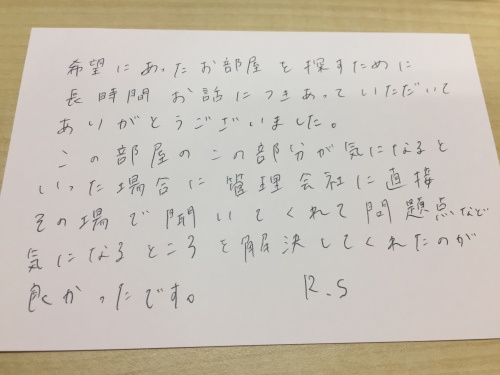 希望にあったお部屋を探すために
長時間お話につきあっていただいて
ありがとうございました。
この部屋のこの部分が気になると
いった場合に管理会社に直接
その場で聞いてくれて問題点など
気になるところを解決してくれたのが
良かったです。 R.S